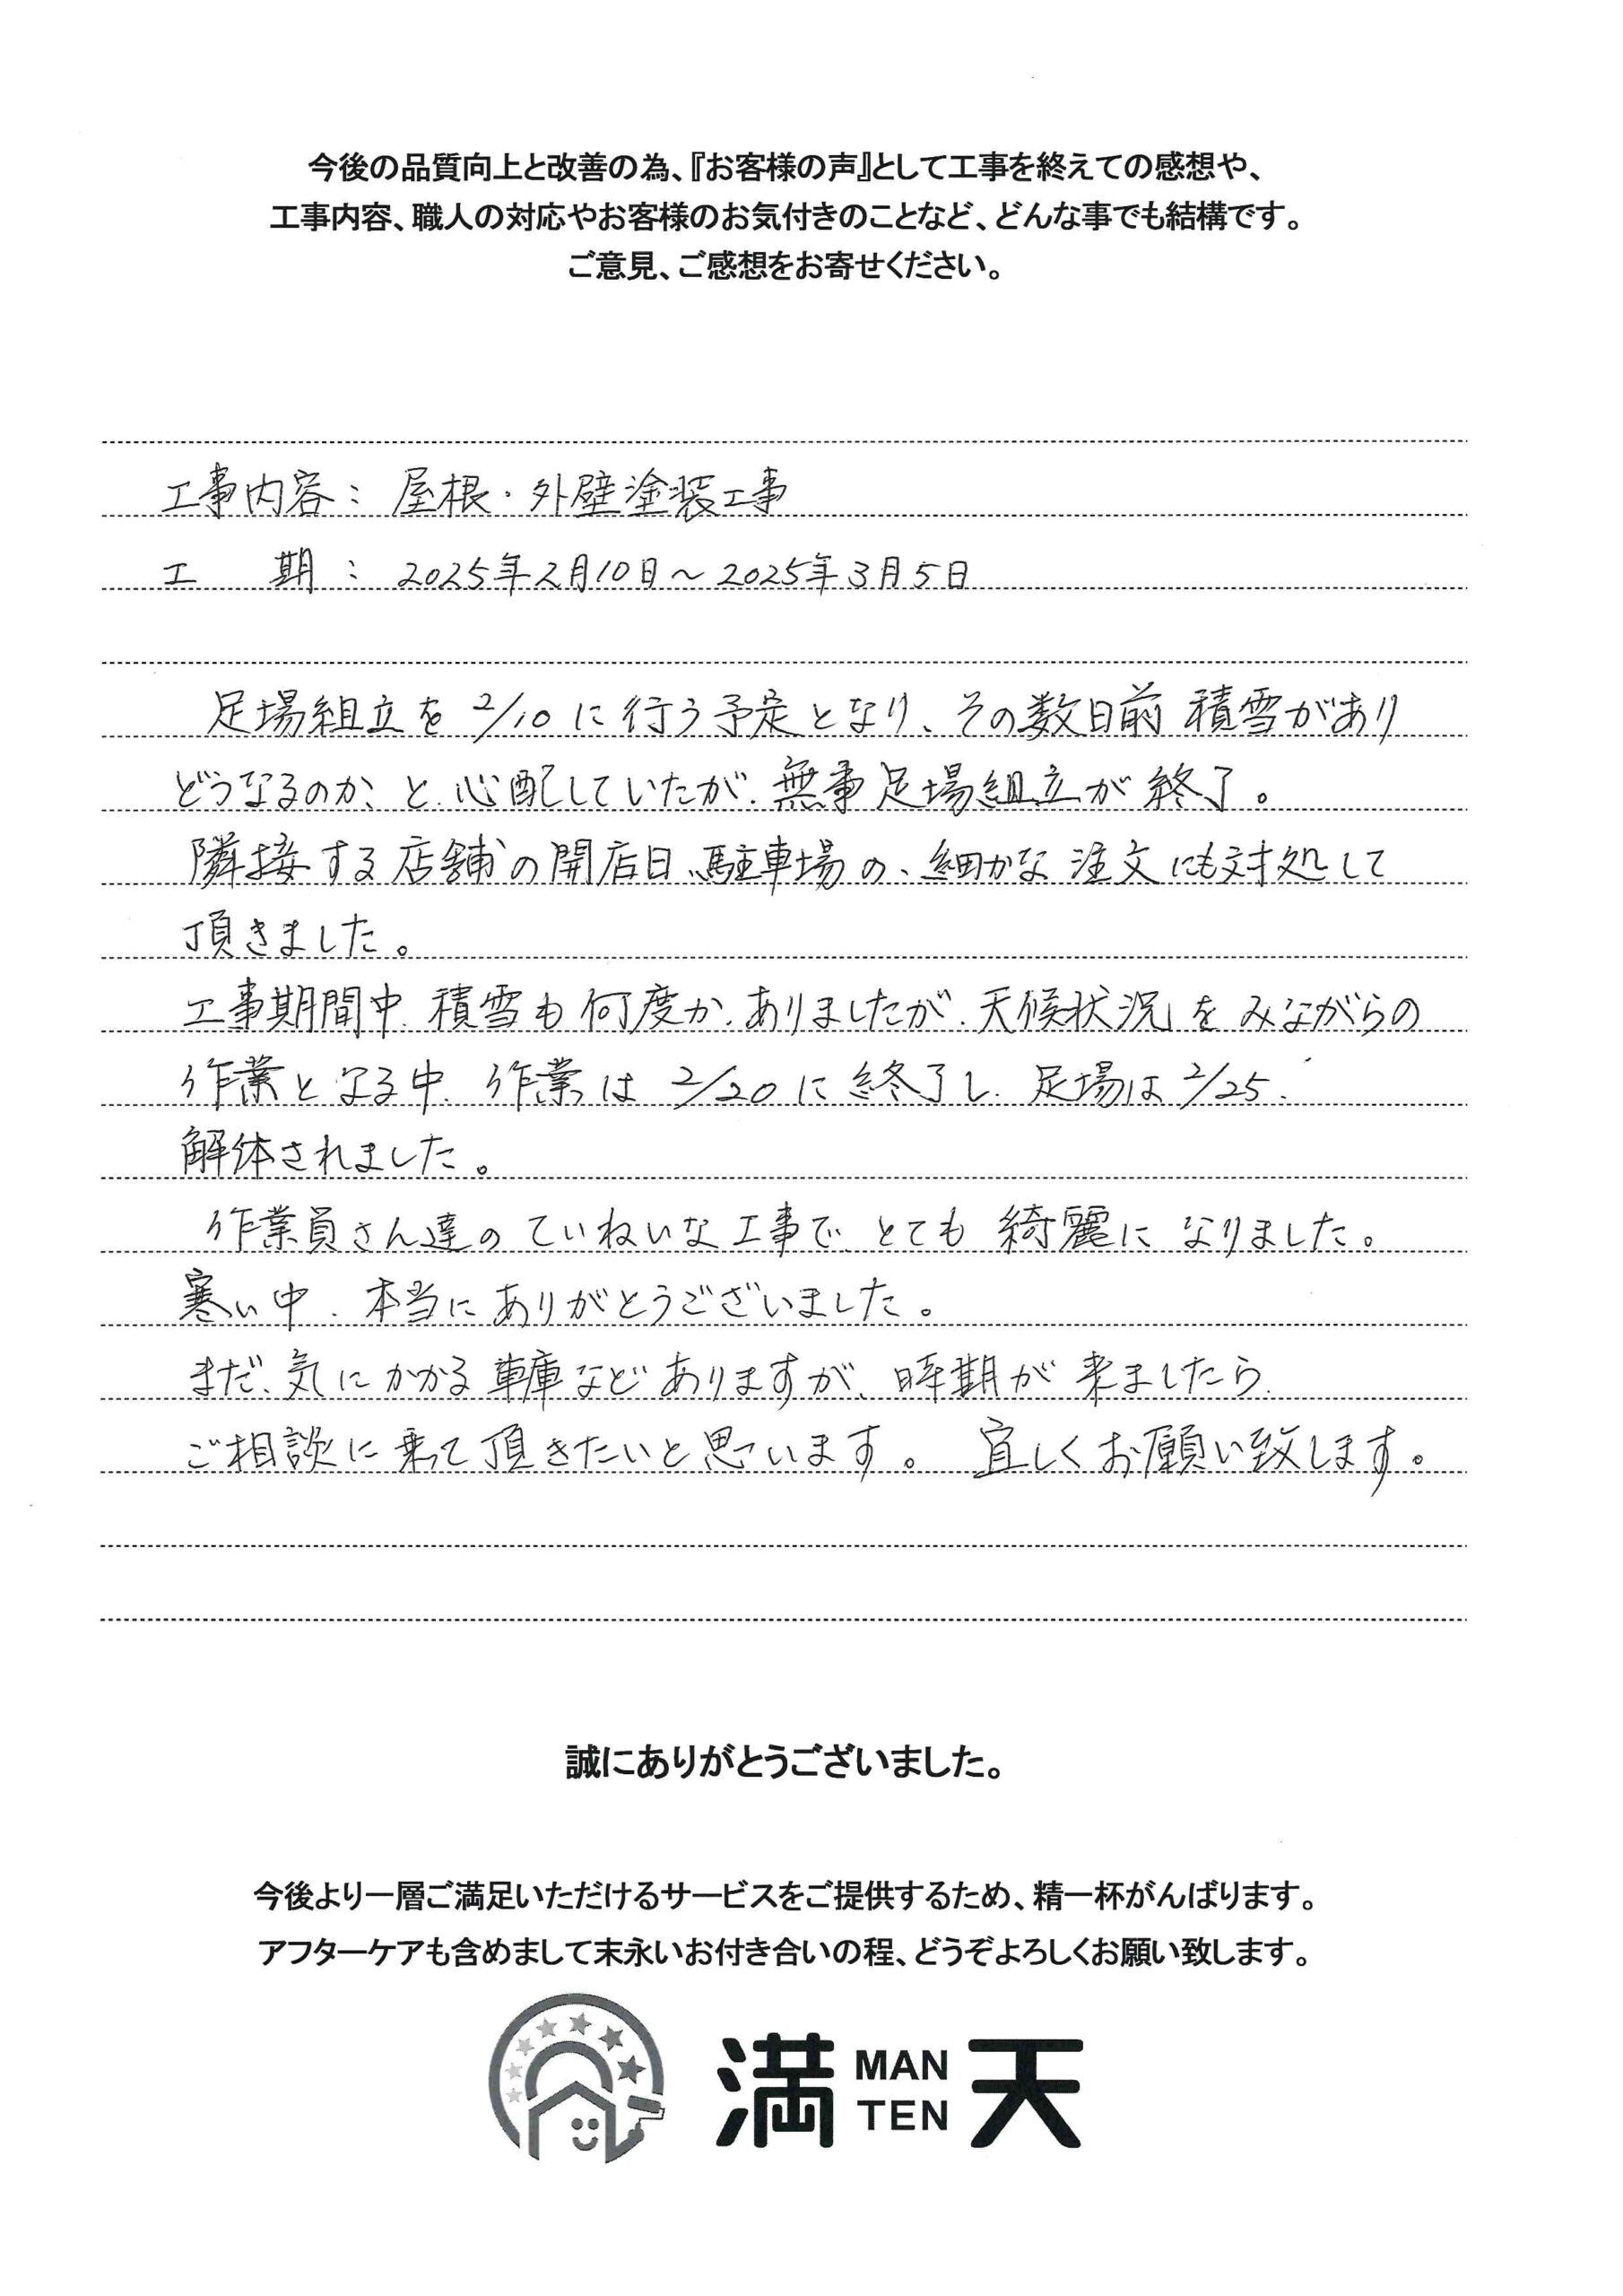 今後の品質向上と改善の為、『お客様の声』として工事を終えての感想や、
工事内容、職人の対応やお客様のお気付きのことなど、どんな事でも結構です。
ご意見、ご感想をお寄せください。
工事内容：屋根・外壁塗装工事
工　期：2025年2月10日～2025年3月5日
足場組立を2/10に行う予定となり、その数日前積雪があり
どうなるのか、と、心配していたが、無事足場組立が終了。
隣接する店舗の開店日、駐車場の、細かな注文にも対処して
頂きました。
工事期間中、積雪も何度か、ありましたが、天候状況をみながらの
作業となる中、作業は2/20に終了し、足場は2/25、
解体されました。
作業員さん達のていねいな工事で、とても綺麗になりました。
寒い中、本当にありがとうございました。
まだ、気にかかる車庫などありますが、時期が来ましたら、
ご相談に乗って頂きたいと思います。宜しくお願い致します。
誠にありがとうございました。
今後より一層ご満足いただけるサービスをご提供するため、精一杯がんばります。
アフターケアも含めまして末永いお付き合いの程、どうぞよろしくお願い致します。
満 MAN TEN 天